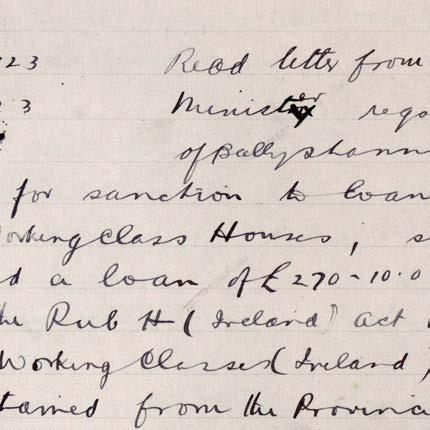 23 Read letter from
23 Minister rega
of Ballyshann
for sanction to loan
Working Class Houses, s
d a loan of £270-10.0
the Pub H (Ireland) Act
Working Classes (Ireland,
tained from the Provincia